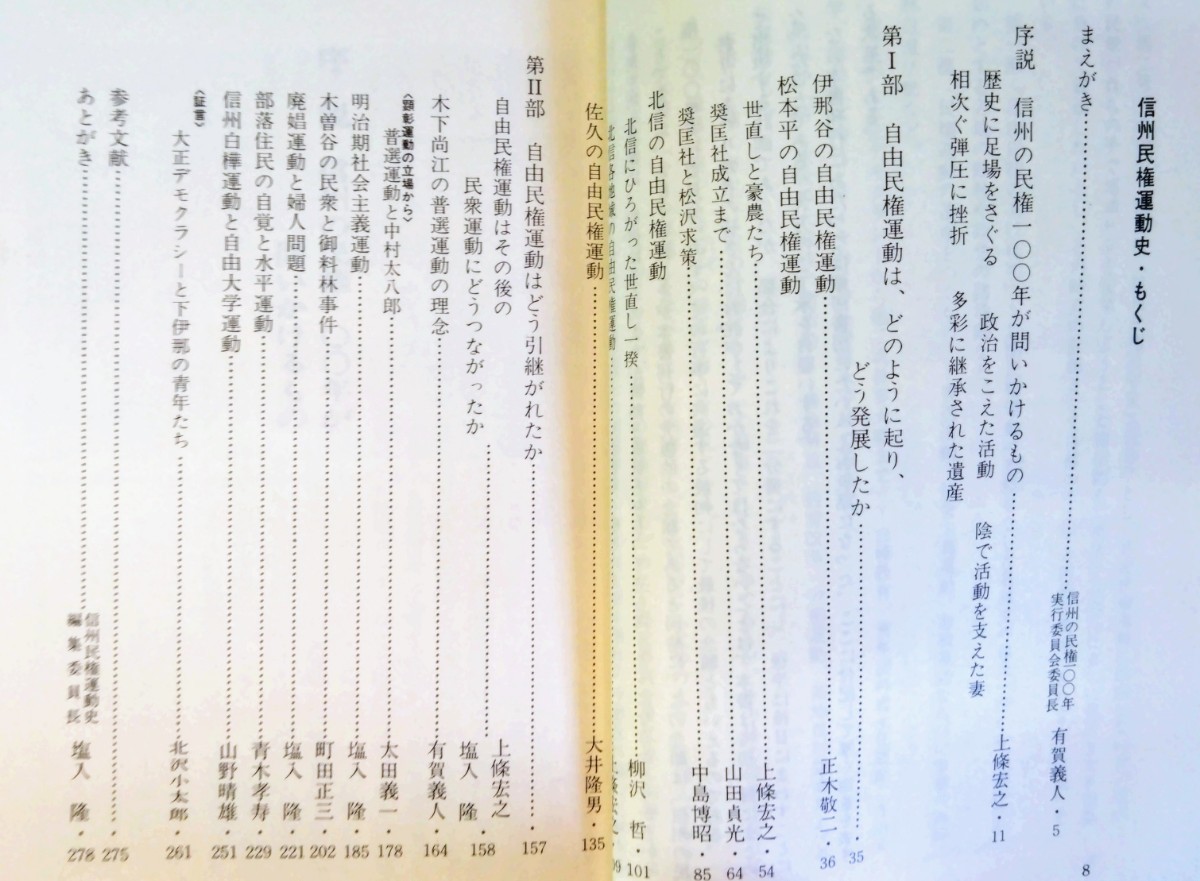 信州民権運動史・もくじ
まえがき
信州の民権一〇〇年
実行委員会委員長
有賀義人・5
序説 信州の民権一〇〇年が問いかけるもの 上條宏之・11
歴史に足場をさぐる 政治をこえた活動 陰で活動を支えた妻
相次ぐ弾圧に挫折 多彩に継承された遺産
第Ⅰ部 自由民権運動は、どのように起り、
どう発展したか ・35
伊那谷の自由民権運動 正木敬二・36
松本平の自由民権運動
世直しと豪農たち 上條宏之・54
奨匡社成立まで 山田貞光・64
奨匡社と松沢求策 中島博昭・85
北信の自由民権運動
北信にひろがった世直し一揆 柳沢 哲・101
北信各地域の自由民権運動 上條宏之・
佐久の自由民権運動 大井隆男・135
8
第Ⅱ部 自由民権運動はどう引継がれたか ・157
自由民権運動はその後の
民衆運動にどうつながったか
上條宏之
塩入 隆・158
木下尚江の普選運動の理念 有賀義人・164
〈顕彰運動の立場から〉
普選運動と中村太八郎 太田義一・178
明治期社会主義運動 塩入 隆・185
木曽谷の民衆と御料林事件 町田正三・202
廃娼運動と婦人問題 塩入 隆・221
部落住民の自覚と水平運動 青木孝寿・229
信州白樺運動と自由大学運動 山野晴雄・251
〈証言〉
大正デモクラシーと下伊那の青年たち 北沢小太郎・261
参考文献 ・275
あとがき
信州民権運動史
編集委員長
塩入 隆・278